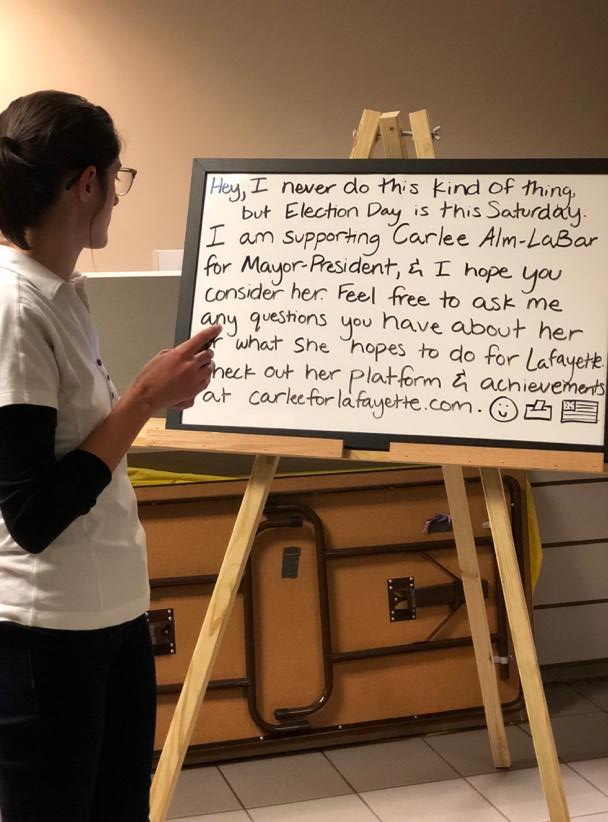 Hey, I never do this kind of thing,
but Election Day is this Saturday.
I am supporting Carlee Alm-LaBar
for Mayor-President, & I hope you
consider her. Feel free to ask me
any questions you have about her
r what she hopes to do for Lafayette.
heck out her platform & achievements
at carleeforlafayette.com.